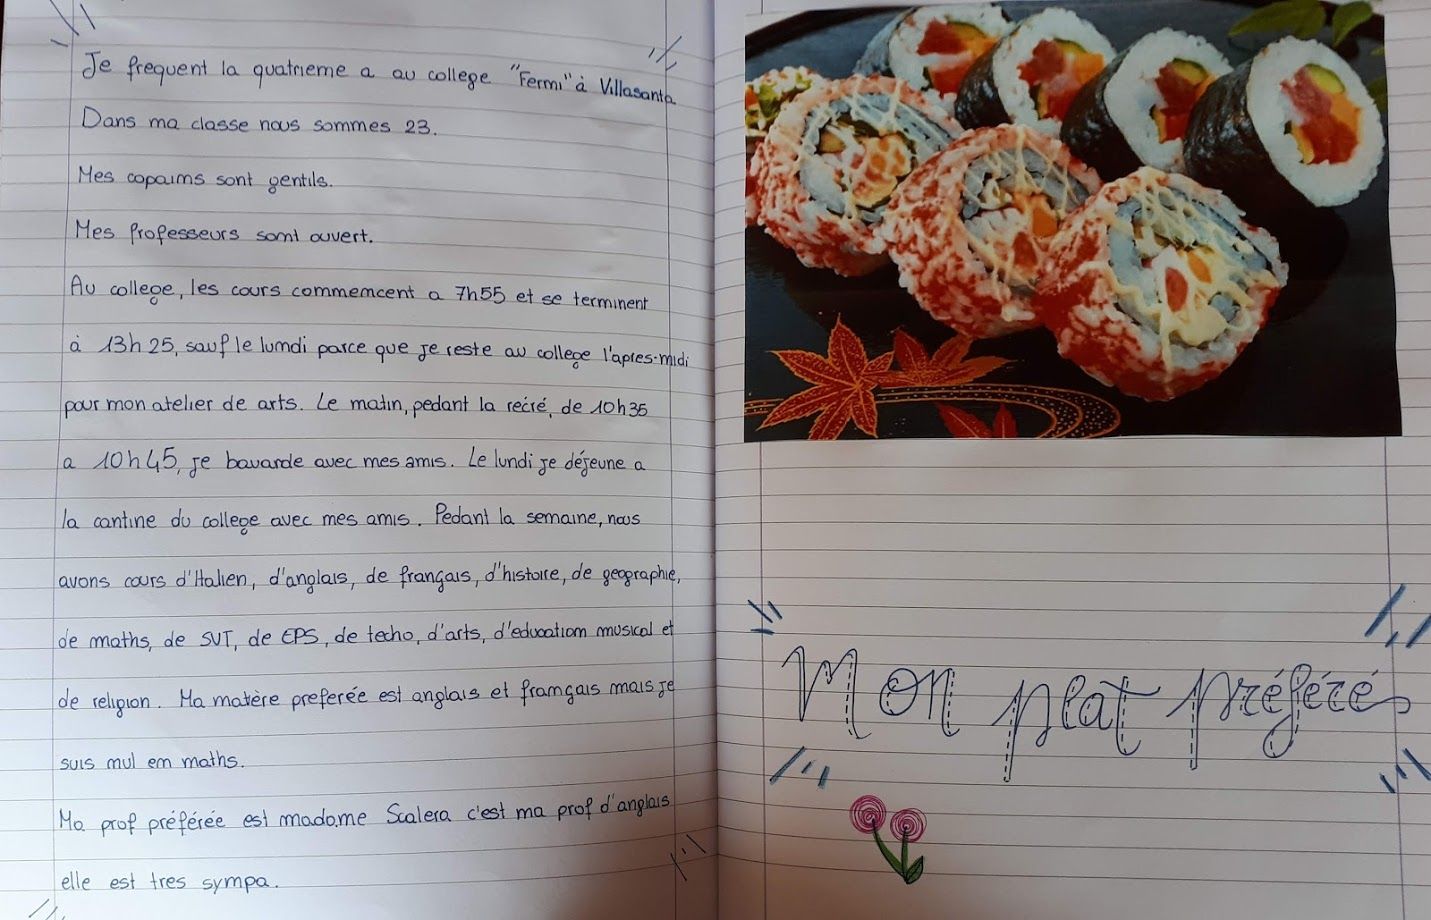 Je frequent la quatrieme a au college "Fermi" à Villasanta
Dans ma classe nous sommes 23.
Mes copaims sont gentils.
Mes professeurs somt ouvert.
Au college, les cours commemcent a 7h55 et se terminent
à 13h25, sauf le lumdi parce que je reste au college l'apres-midi
pour mon atelier de arts. Le matin, pedant la recré, de 10h35
a 10h45, je bavarde avec mes amis. Le lundi je déjeune a
la cantine du college avec mes amis. Pedant la semaine, nous
avons cours d'Italien, d'anglais, de français, d'histoire, de geographie,
de maths, de SVT, de EPS, de techo, d'arts, d'educatiom musical et
de religion. Ma matère preferée est anglais et framçais mais je
suis mul em maths.
Ma prof préférée est madame Scalera c'est ma prof d'anglais
elle est tres sympa.
Mon plat préféré